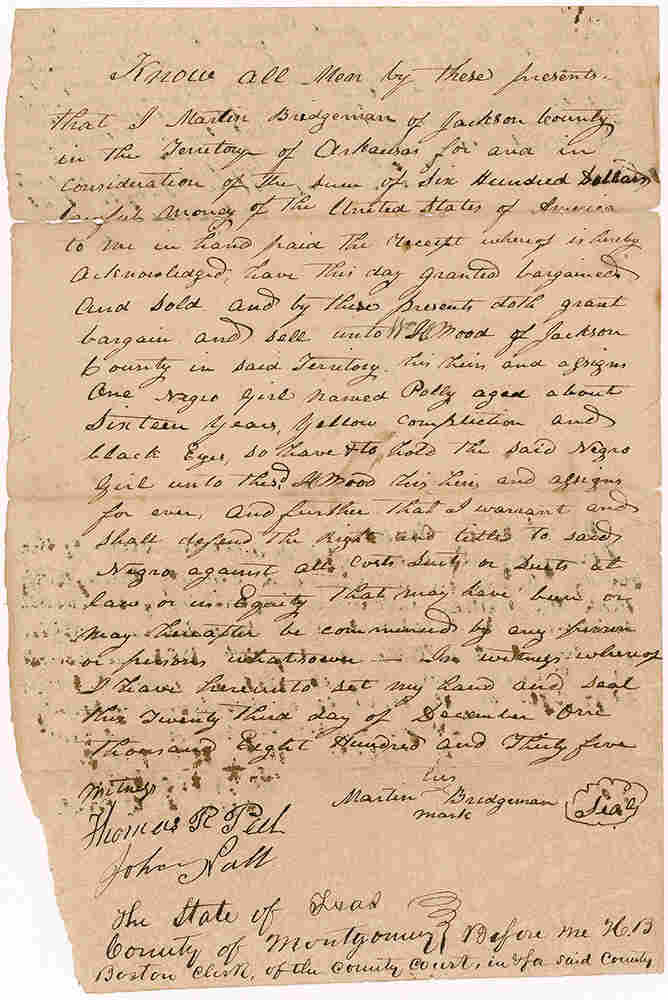 Know all Men by these presents.
that I Martin Bridgeman of Jackson County
in the Territory of Arkansas for and in
Consideration of the sum of Six Hundred Dollars
lawful money of the United States of America
to me in hand paid the receipt whereof is hereby
acknowledged, have this day granted bargained
and sold and by these presents doth grant
bargain and sell unto Wm H Wood of Jackson
County in said Territory his heirs and assigns
One Negro Girl named Polly aged about
Sixteen Years, Yellow Complection and
black Eyes, so have & to hold the said Negro
Girl unto the sd H Wood his heirs and assigns
for ever, and further that I warrant and
shall defend the Right and title to said
Negro against all Costs Suits or Suits at
law or in Equity that may have been or
may hereafter be commenced by any person
or persons whatsoever — In witness whereof
I have hereunto set my hand and seal
this Twenty third day of December One
thousand Eight Hundred and Thirty five
Witness
his
Martin Bridgeman
mark
Seal
Thomas R
John
The State of Texas
County of Montgomery Before me H B
Boston Clerk, of the County Court, in & for said County